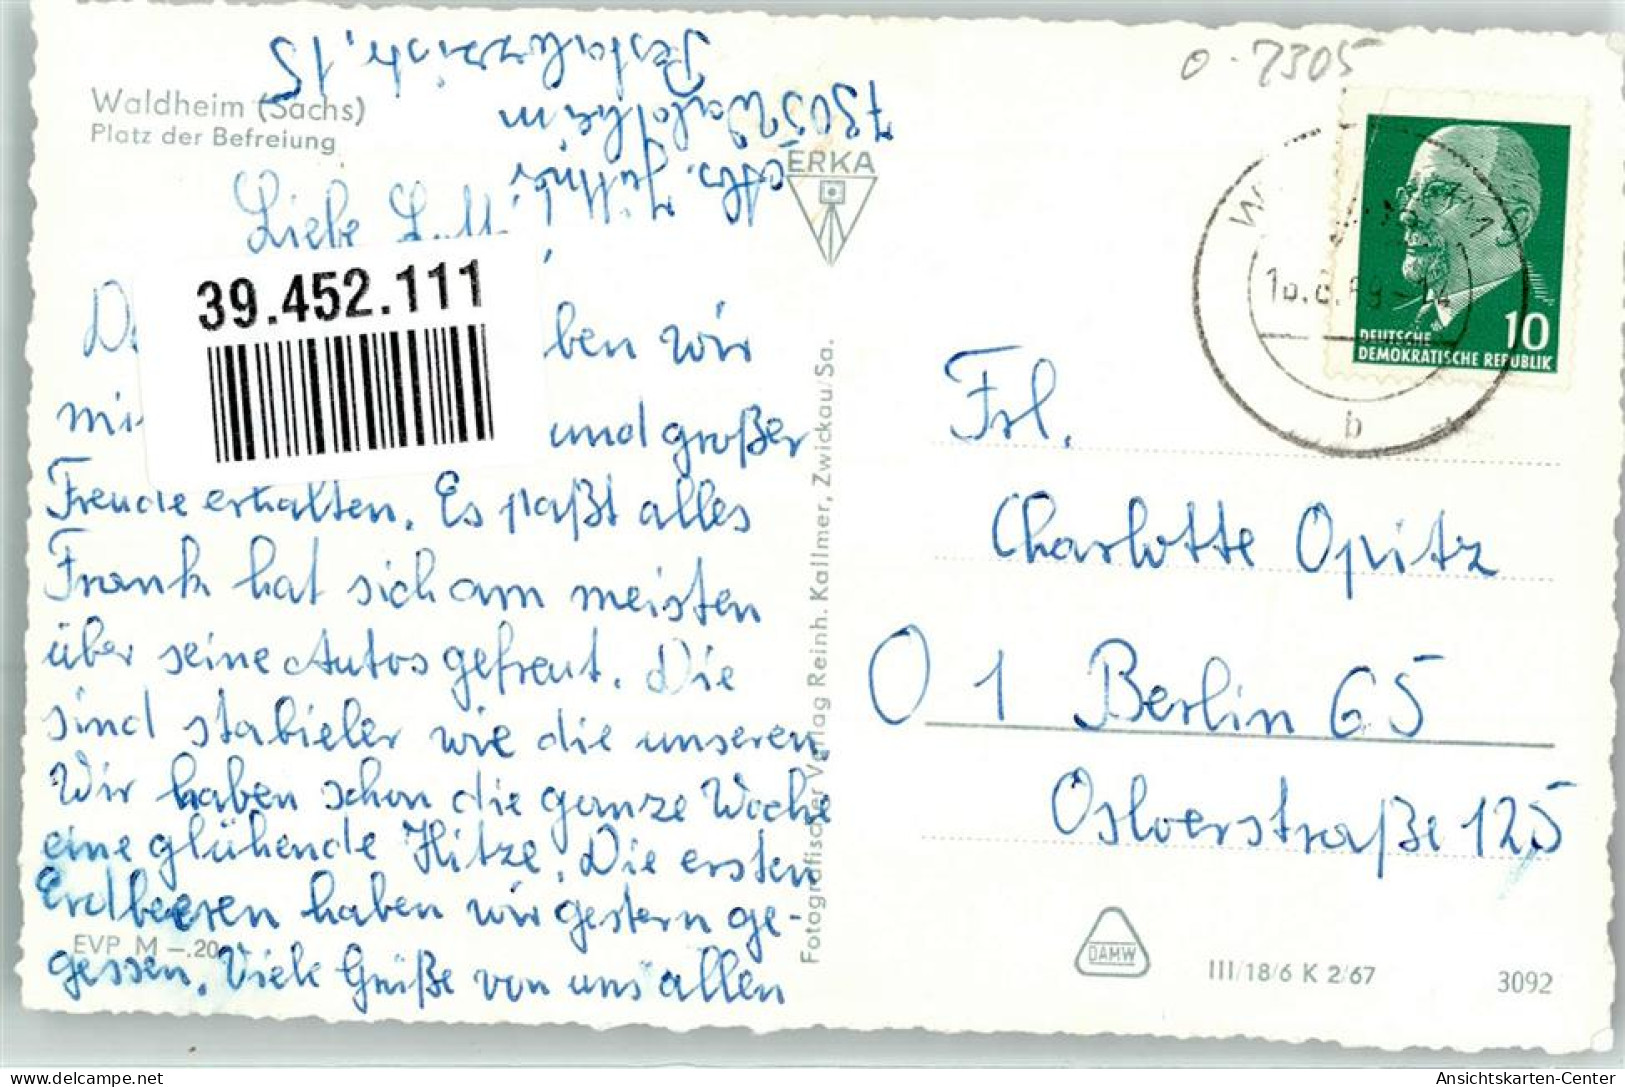 O-7305
Waldheim (Sachs)
Platz der Befreiung
Abs. Jüttner
7305 Waldheim
Pestalozzistr. 15
ERKA
Liebe
39.452.111
ben wir
und großer
Freude erhalten. Es paßt alles
Frank hat sich am meisten
über seine Autos gefreut. Die
sind stabieler wie die unseren
Wir haben schon die ganze Woche
eine glühende Hitze. Die ersten
Erdbeeren haben wir gestern ge-
gessen. Viele Grüße von uns allen
EVP M -.20
Fotografischer Verlag Reinh. Kallmer, Zwickau/Sa.
10
DEUTSCHE
DEMOKRATISCHE REPUBLIK
b
Frl.
Charlotte Opitz
O 1 Berlin 65
Osloerstraße 125
DAMW
III/18/6 K 2/67
3092
https://www.delcampe.net
Ansichtskarten-Center